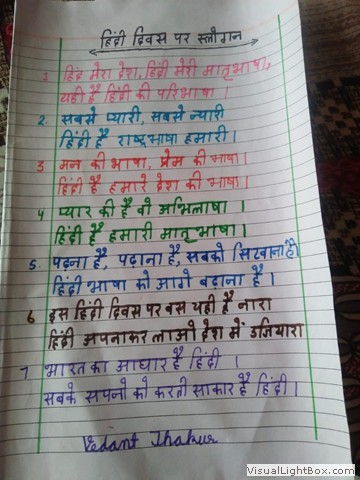 हिंदी दिवस पर स्लोगान
1. हिंद मेरा देश, हिंदी मेरी मातृभाषा,
यही है हिंदी की परिभाषा ।
2. सबसे प्यारी, सबसे न्यारी
हिंदी है राष्ट्रभाषा हमारी ।
3 मन की भाषा, प्रेम की भाषा ।
हिंदी है हमारे देश की भाषा ।
4 प्यार की है वो अभिलाषा ।
हिंदी है हमारी मातृभाषा ।
5. पढ़ना है, पढ़ाना है, सबको सिखाना है।
हिंदी भाषा को आगे बढ़ाना है ।
6 इस हिंदी दिवस पर बस यही है नारा
हिंदी अपनाकर लाओ देश में उजियारा
7 भारत का आधार है हिंदी ।
सबके सपनो को करती साकार है हिंदी ।
Vedant Thakur
VisualLightBox.com